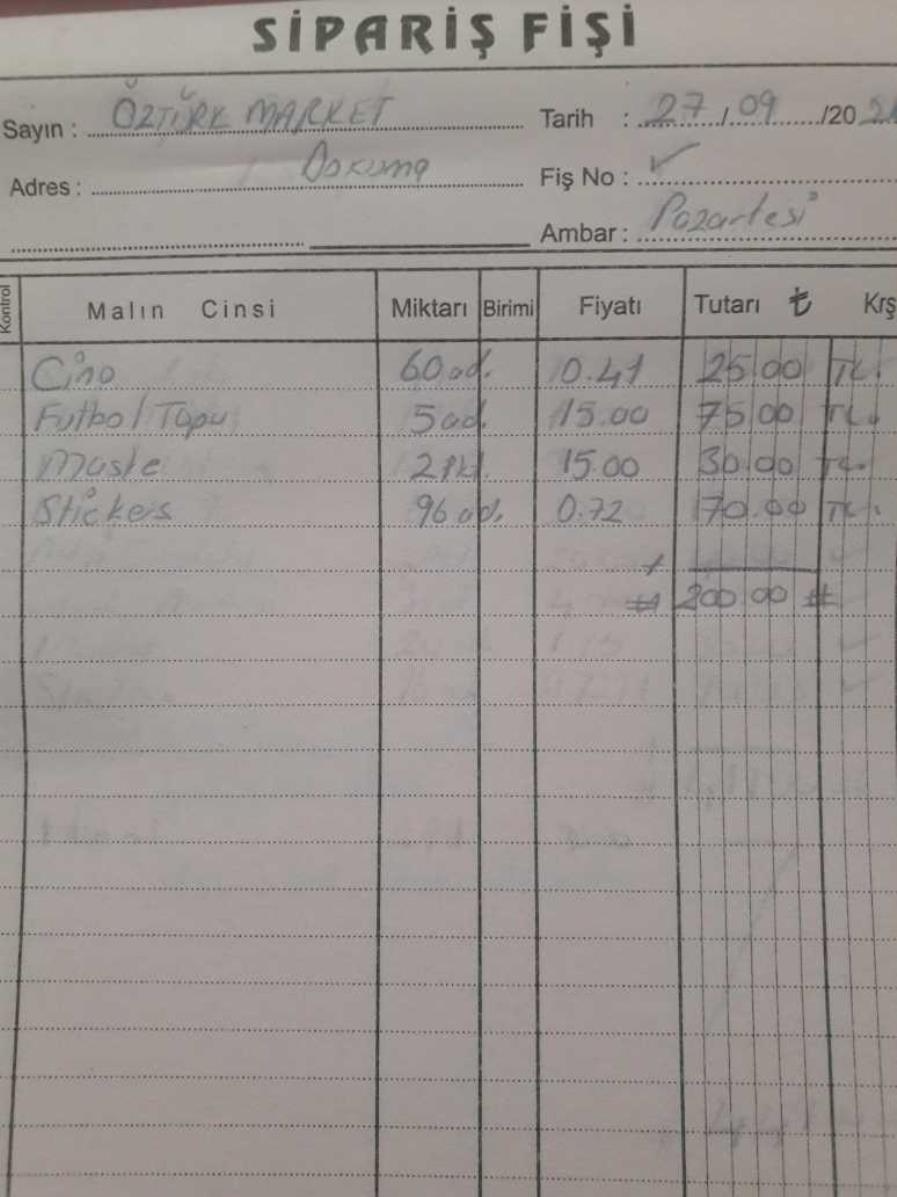 SİPARİŞ FİŞİ
Sayın : ÖZTÜRK MARKET Tarih : 27/09/2021
Adres : Dokuma Fiş No : ✓
Ambar : Pazartesi
Kontrol Malın Cinsi Miktarı Birimi Fiyatı Tutarı ₺ Krş
Cino 60 ad. 0.41 25.00 TL.
Futbol Topu 5 ad. 15.00 75.00 TL.
Maske 2 Pkt. 15.00 30.00 TL.
Stickers 96 ad. 0.72 70.00 TL.
+
# 200.00 #